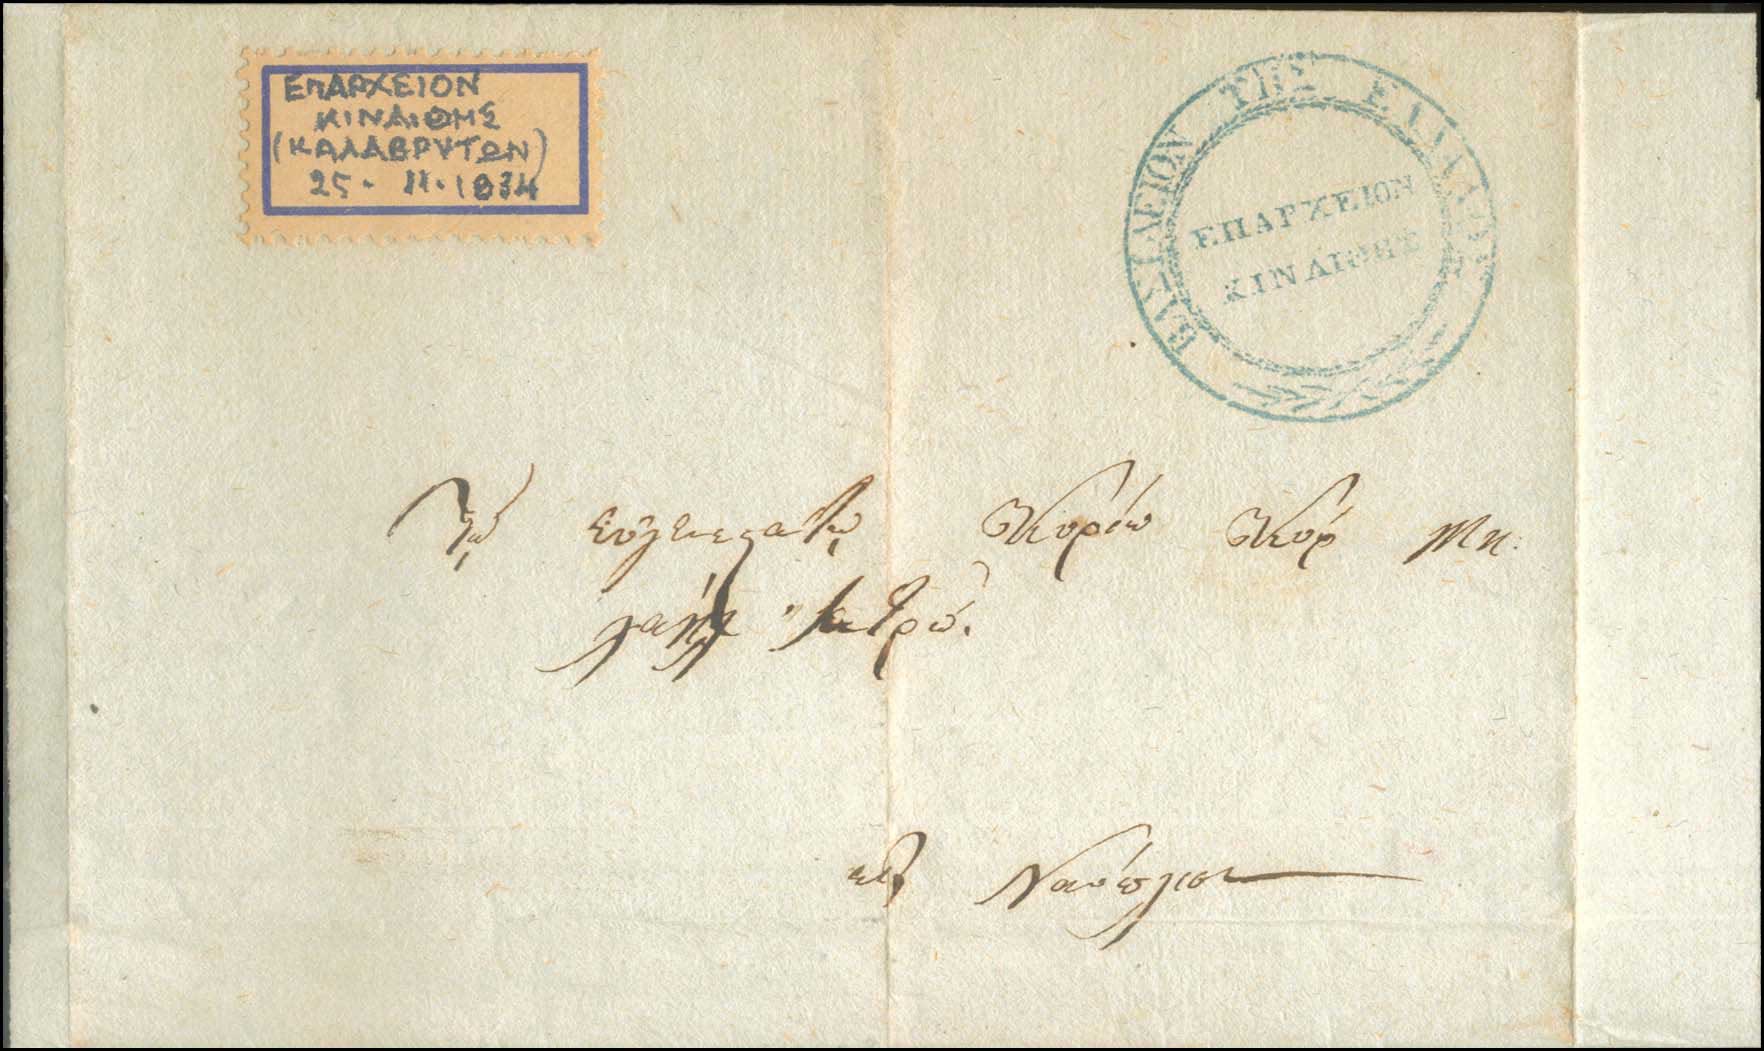 ΕΠΑΡΧΕΙΟΝ
ΚΙΝΑΙΘΗΣ
(ΚΑΛΑΒΡΥΤΩΝ)
25. 11. 1834
ΒΑΣΙΛΕΙΟΝ ΤΗΣ ΕΛΛΑΔΟΣ
ΕΠΑΡΧΕΙΟΝ
ΚΙΝΑΙΘΗΣ
Τῷ εὐγενεστάτῳ Κυρίῳ Κυρ Μι:
χαὴλ Ἰατρῷ.
εἰς Ναύπλιον